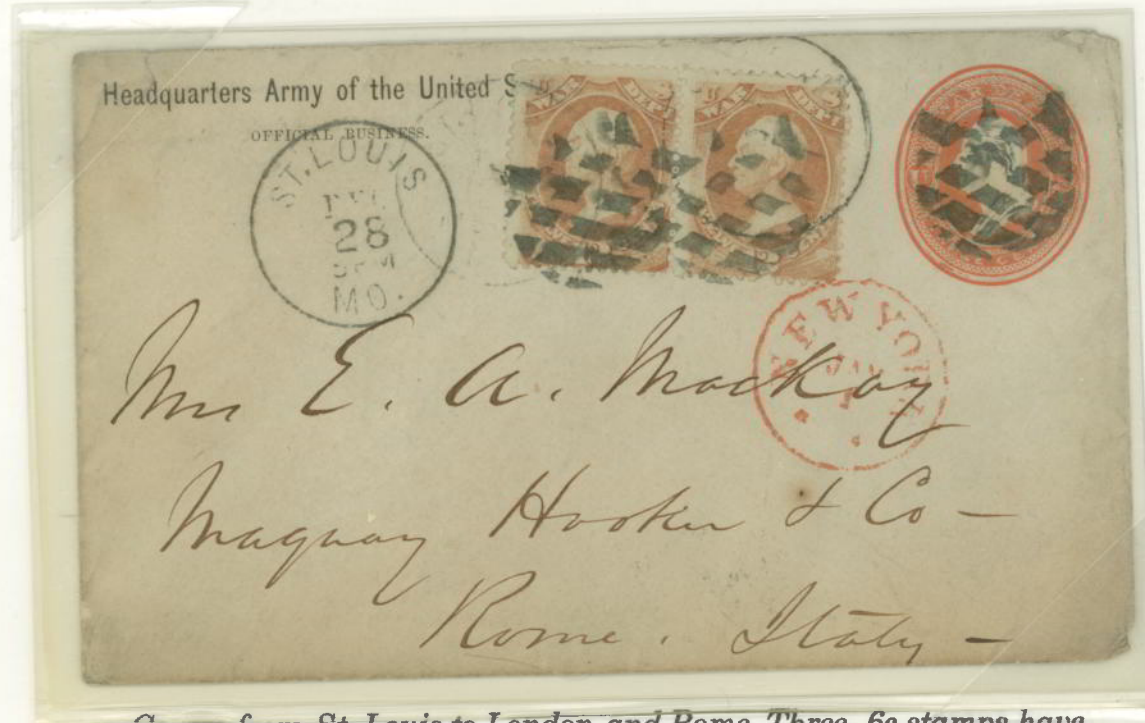 Headquarters Army of the United S
OFFICIAL BUSINESS.
ST. LOUIS
DEC
28
MO.
WAR DEPT.
WAR DEPT.
NEW YORK
JAN
Mrs E. A. Mackay
Maquay Hooker & Co –
Rome. Italy –
from St. Louis to London and Rome. Three 6c stamps have